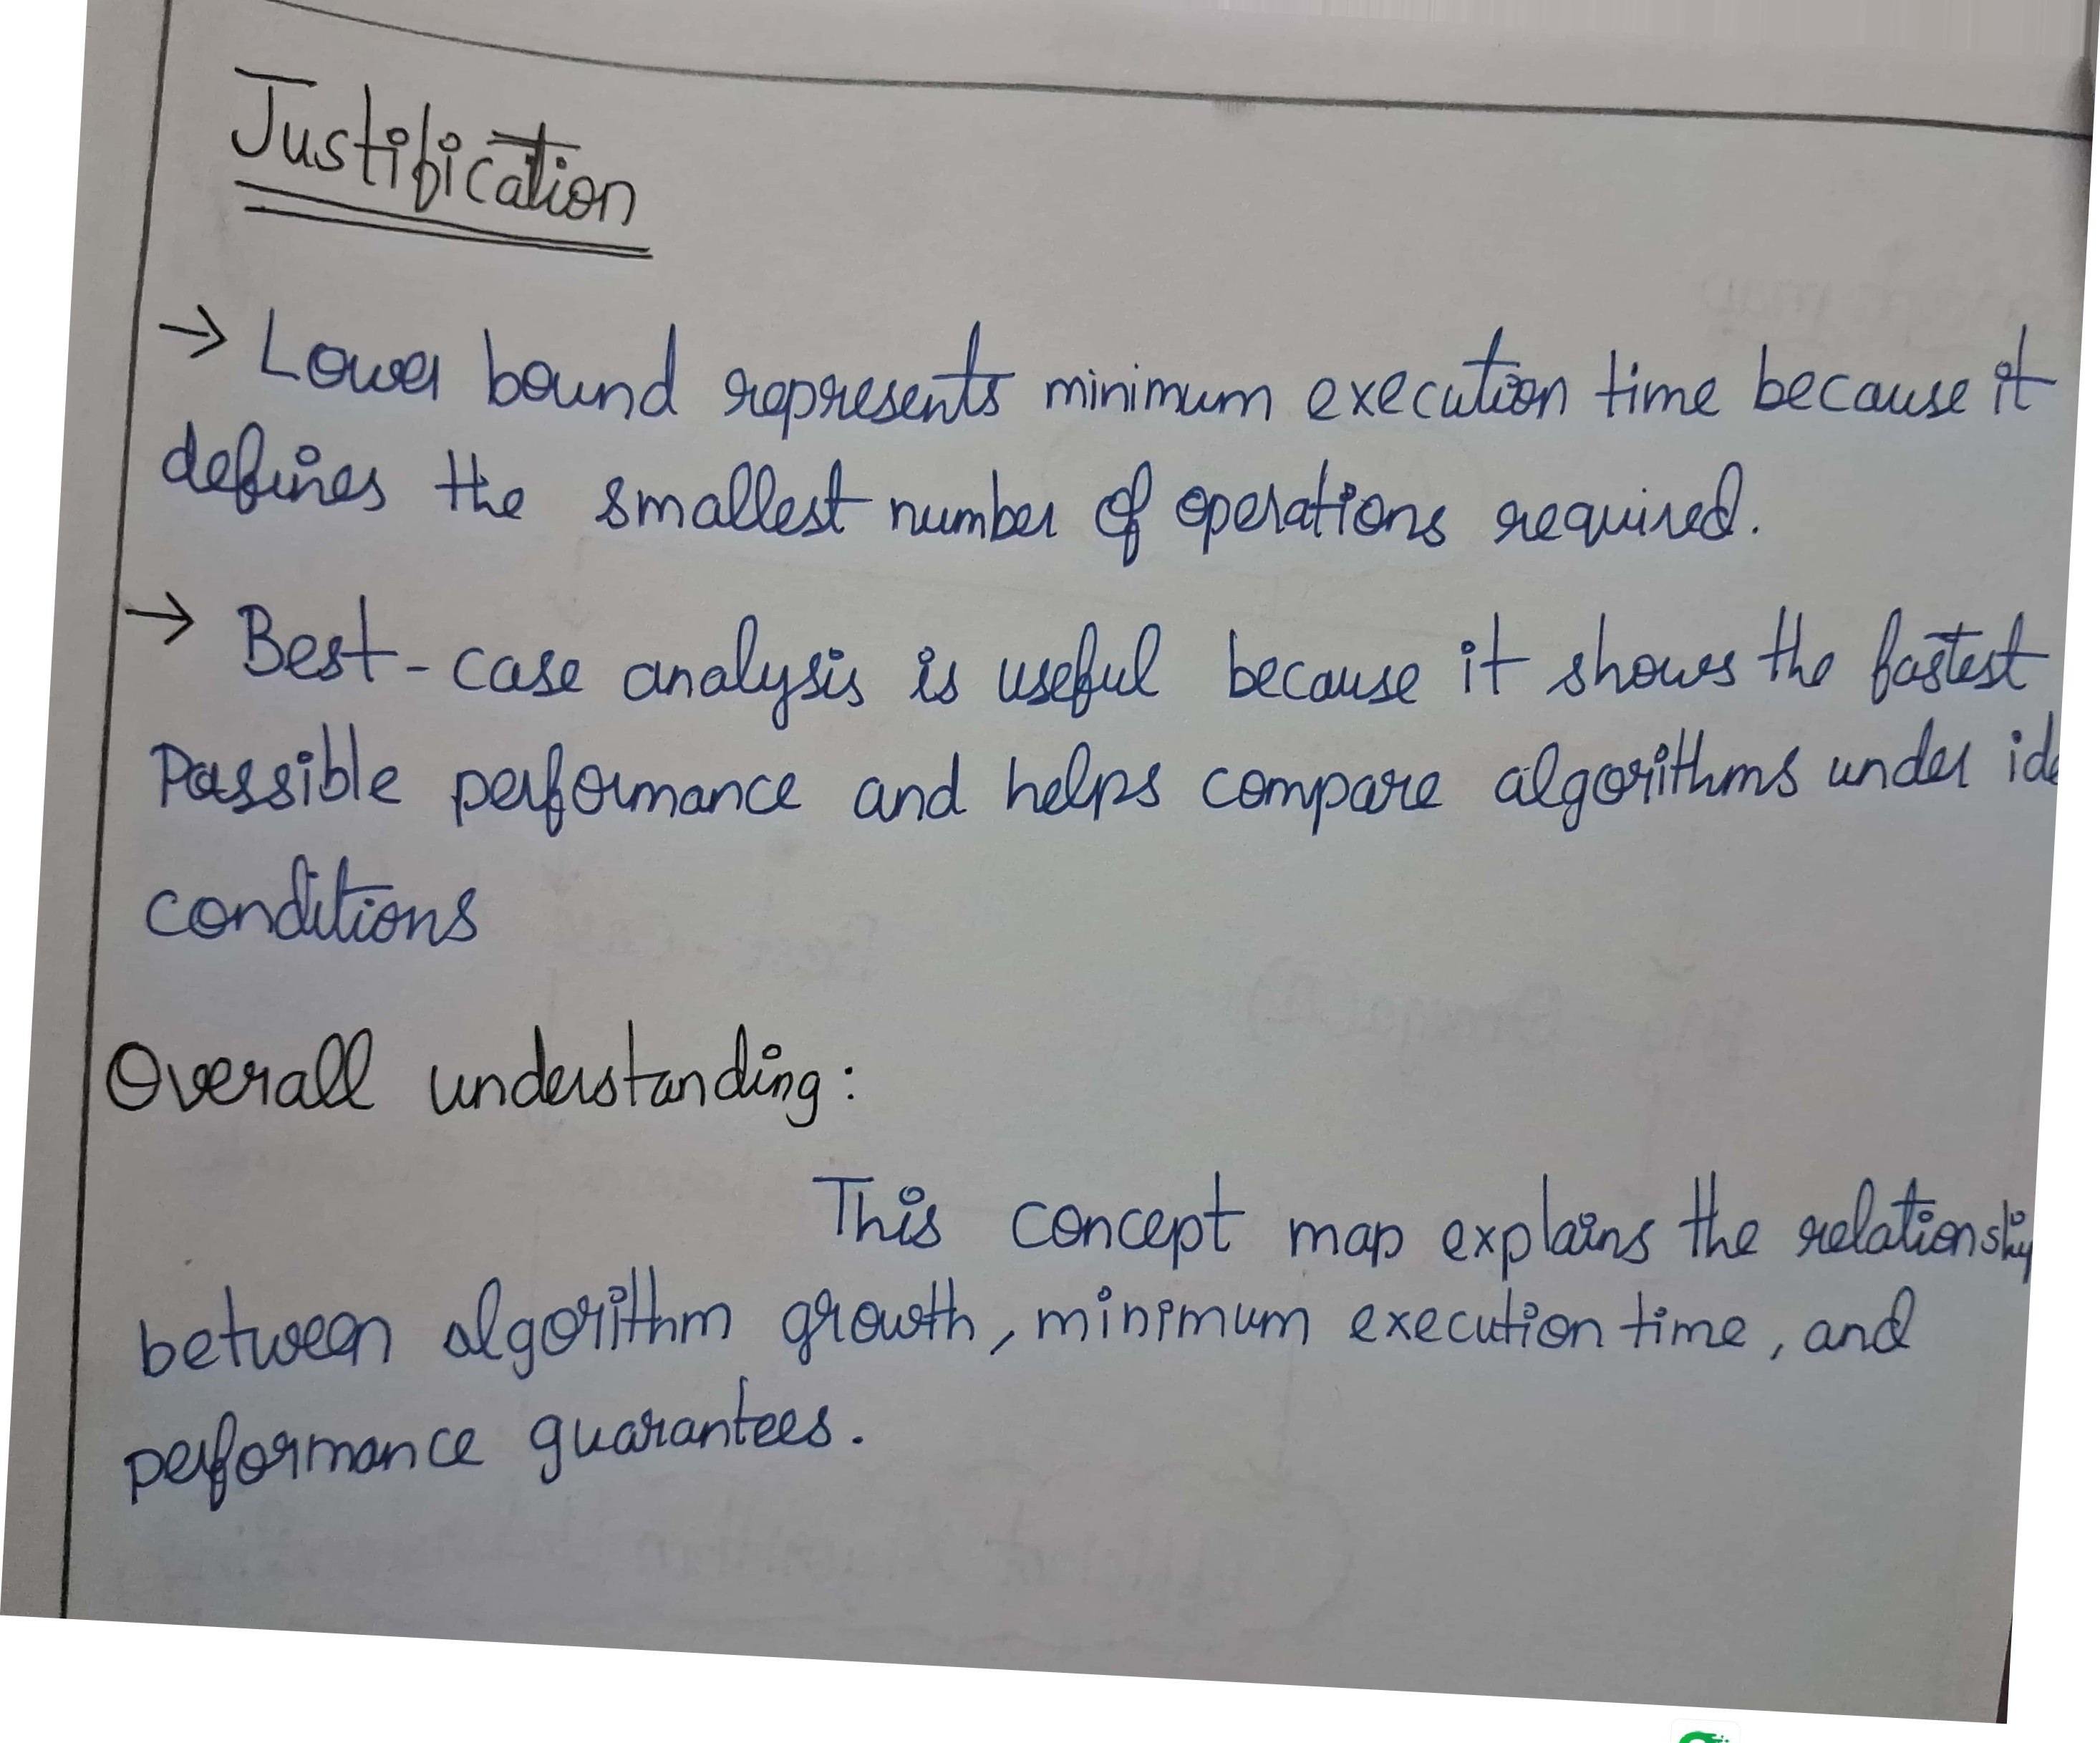 Justification
→ Lower bound represents minimum execution time because it
defines the smallest number of operations required.
→ Best-case analysis is useful because it shows the fastest
Possible performance and helps compare algorithms under ide
conditions
Overall understanding:
This concept map explains the relationship
between algorithm growth, minimum execution time, and
performance guarantees.